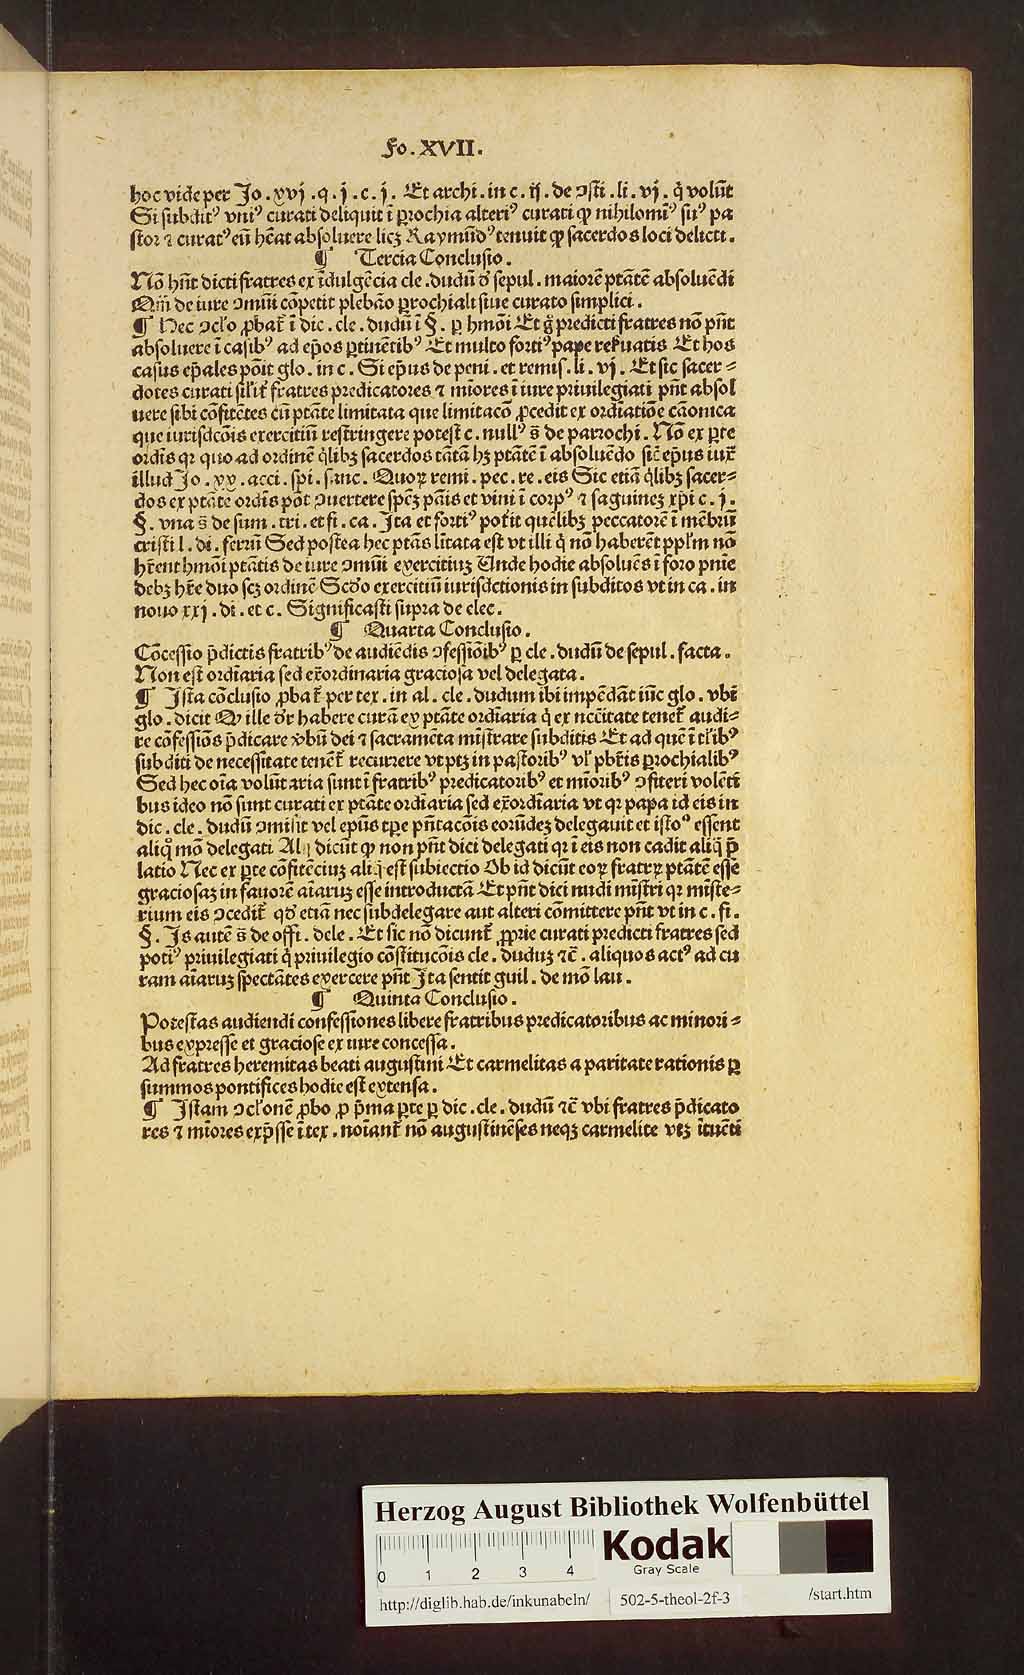 Fo. XVII.
hoc vide per Jo. xvj. q. j. c. j. Et archi. in c. ij. de ↄsti. li. vj. q̇ volūt
Si subdit⁹ vni⁹ curati deliquit ī ꝑrochia alteri⁹ curati ꝙ nihilomi⁹ su⁹ pa
stor ⁊ curat⁹ eū hēat absoluere licꝫ Raymūd⁹ tenuit ꝙ sacerdos loci delicti.
¶ Tercia Conclusio.
Nō hn̄t dicti fratres ex īdulgēcia cle. dudū ð sepul. maiorē ptātē absoluēdi
Qm̄ de iure ↄmūi cōpetit plebāo ꝑrochiali siue curato simplici.
¶ Hec ↄcl'o ꝓbat̄ ī dic. cle. dudū ī §. ꝑ hmōi Et g̊ predicti fratres nō pn̄t
absoluere ī casib⁹ ad ep̄os ꝑtinētib⁹ Et multo forti⁹ pape rer̄uatis Et hos
casus ep̄ales pōit glo. in c. Si ep̄us de peni. et remis. li. vj. Et sic sacer⸗
dotes curati sil'it̄ fratres predicatores ⁊ miōres ī iure priuilegiati pn̄t absol
uere sibi cōfitētes cū ptāte limitata que limitacō ꝓcedit ex ordīatiōe cāonica
que iurisdcōis exercitiū restringere potest c. null⁹ s̄ de parrochi. Nō ex ꝑte
ordīs qꝛ quo ad ordinē q̇libꝫ sacerdos tātā hꝫ ptātē ī absoluēdo sic̄ ep̄us iux̄
illud Jo. xx. acci. spi. sanc. Quoꝝ remi. pec. re. eis Sic etiā q̇libꝫ sacer⸗
dos ex ptāte ordīs pōt ↄuertere spēꝫ pāis et vini ī corp⁹ ⁊ saguineꝫ xp̄i c. j.
§. vna s̄ de sum. tri. et fi. ca. Ita et forti⁹ pot̄it quēlibꝫ peccatorē ī mēbrū
cristi l. di. ferrū Sed postea hec ptās līitata est vt illi q̇ nō haberēt ppl'm nō
hr̄ent hmōi ptātis de iure ↄmūi exercitiuꝫ Unde hodie absoluēs ī foro pnīe
debꝫ hr̄e duo scꝫ ordinē Scd̄o exercitiū iurisdctionis in subditos vt in ca. in
nouo xxj. di. et c. Significasti supra de elec.
¶ Quarta Conclusio.
Cōcessio p̄dictis fratrib⁹ de audiēdis ↄfessiōib⁹ ꝑ cle. dudū de sepul. facta.
Non est ordīaria sed ex̄ordinaria graciosa vel delegata.
¶ Ista cōclusio ꝓbat̄ per tex. in al. cle. dudum ibi impēdāt iūc glo. vbi
glo. dicit Ꝙ ille dr̄ habere curā ex ptāte ordīaria q̇ ex nccītate tenet̄ audi⸗
re cōfessiōs p̄dicare v̄bū dei ⁊ sacramēta mīstrare subditis Et ad quē ī tl'ib⁹
subditi de necessitate tenēt̄ recurrere vt ptꝫ in pastorib⁹ vl' pbr̄is ꝑrochialib⁹
Sed hec oīa volūtaria sunt ī fratrib⁹ predicatorib⁹ et mīorib⁹ ↄfiteri volēti
bus ideo nō sunt curati ex ptāte ordīaria sed ex̄ordīaria vt qꝛ papa id eis in
dic. cle. dudū ↄmisit vel ep̄us tp̄e pn̄tacōis eorūdeꝫ delegauit et isto⁹ essent
aliq̊ mō delegati Al dicūt ꝙ non pn̄t dici delegati qꝛ ī eis non cadit aliq̄ p̄
latio Nec ex ꝑte cōfitēciuꝫ aliq̄ est subiectio Ob id dicūt eoꝝ fratrꝝ ptātē esse
graciosaꝫ in fauorē aīaruꝫ esse introductā Et pn̄t dici nudi mīstri qꝛ mīste⸗
rium eis ↄcedit̄ qð etiā nec subdelegare aut alteri cōmittere pn̄t vt in c. fi.
§. Is autē s̄ de offi. dele. Et sic nō dicunt̄ ꝓprie curati predicti fratres sed
poti⁹ priuilegiati q̇ priuilegio cōstitucōis cle. duduꝫ ⁊c̄. aliquos act⁹ ad cu
ram aīaruꝫ spectātes exercere pn̄t Ita sentit guil. de mō lau.
¶ Quinta Conclusio.
Potestas audiendi confessiones libere fratribus predicatoribus ac minori⸗
bus expresse et graciose ex iure concessa.
Ad fratres heremitas beati augustini Et carmelitas a paritate rationis ꝑ
summos pontifices hodie est extensa.
¶ Istam ↄcl'onē ꝓbo ꝓ p̄ma ꝑte ꝑ dic. cle. dudū ⁊c̄ vbi fratres p̄dicato
res ⁊ miōres exp̄sse ī tex. noīant̄ nō augustinēses neqꝫ carmelite vtꝫ ītuēti
Herzog August Bibliothek Wolfenbüttel
0 1 2 3 4
Kodak
Gray Scale
http://diglib.hab.de/inkunabeln/ 502-5-theol-2f-3 /start.htm